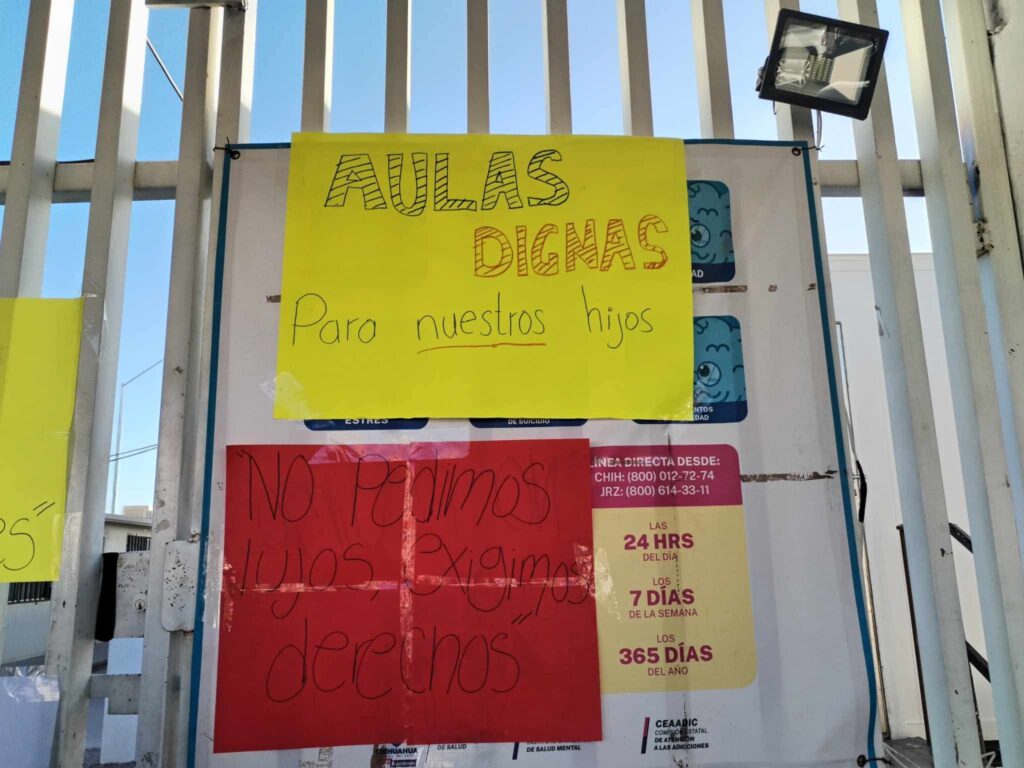 AULAS
DIGNAS
Para nuestros hijos
AD
ESTRÉS
DE SUICIDIO
"NO Pedimos
lujos, exigimos
derechos"
es"
LÍNEA DIRECTA DESDE:
CHIH: (800) 012-72-74
JRZ: (800) 614-33-11
LAS
24 HRS
DEL DÍA
LOS
7 DÍAS
DE LA SEMANA
LOS
365 DÍAS
DEL AÑO
CHIHUAHUA
DE SALUD
DE SALUD MENTAL
CEAADIC
COMISIÓN ESTATAL
DE ATENCIÓN
A LAS ADICCIONES